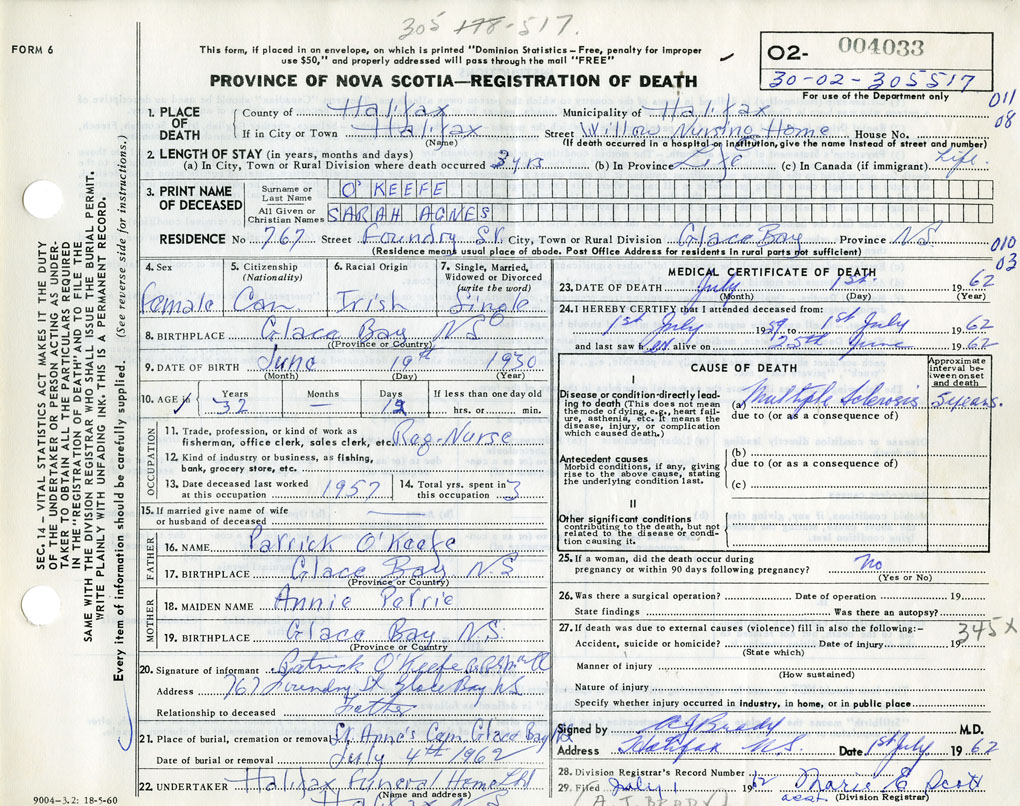 305 178-517.
FORM 6
This form, if placed in an envelope, on which is printed "Dominion Statistics – Free, penalty for improper
use $50," and properly addressed will pass through the mail "FREE"
O2- 004033
30-02-305517
For use of the Department only
PROVINCE OF NOVA SCOTIA—REGISTRATION OF DEATH
011
08
1. PLACE OF DEATH
County of Halifax Municipality of Halifax
If in City or Town Halifax Street Willow Nursing Home House No.
(Name) (If death occurred in a hospital or institution, give the name instead of street and number)
2. LENGTH OF STAY (in years, months and days)
(a) In City, Town or Rural Division where death occurred 3 yrs (b) In Province Life (c) In Canada (if immigrant) Life.
3. PRINT NAME OF DECEASED
Surname or Last Name O'KEEFE
All Given or Christian Names SARAH AGNES
RESIDENCE No 767 Street Foundry St. City, Town or Rural Division Glace Bay Province N.S.
(Residence means usual place of abode. Post Office Address for residents in rural parts not sufficient)
010
03
4. Sex
Female
5. Citizenship
(Nationality)
Can.
6. Racial Origin
Irish
7. Single, Married,
Widowed or Divorced
(write the word)
Single
8. BIRTHPLACE Glace Bay N.S
(Province or Country)
9. DATE OF BIRTH June 19th 1930
(Month) (Day) (Year)
10. AGE in Years Months Days If less than one day old
32 — 12 hrs. or min.
OCCUPATION
11. Trade, profession, or kind of work as
fisherman, office clerk, sales clerk, etc. Reg-Nurse
12. Kind of industry or business, as fishing,
bank, grocery store, etc.
13. Date deceased last worked
at this occupation 1957
14. Total yrs. spent in
this occupation 3
15. If married give name of wife
or husband of deceased —
FATHER
16. NAME Patrick O'Keefe
17. BIRTHPLACE Glace Bay N.S
(Province or Country)
MOTHER
18. MAIDEN NAME Annie Petrie
19. BIRTHPLACE Glace Bay N.S.
(Province or Country)
20. Signature of informant Patrick O'Keefe
Address 767 Foundry St Glace Bay NS
Relationship to deceased Father
21. Place of burial, cremation or removal St Anne's Cem Glace Bay NS
Date of burial or removal July 4th 1962
22. UNDERTAKER Halifax Funeral Home Ltd
(Name and address)
Halifax N.S.
9004-3.2: 18-5-60
MEDICAL CERTIFICATE OF DEATH
23. DATE OF DEATH July 1st. 1962
(Month) (Day) (Year)
24. I HEREBY CERTIFY that I attended deceased from:
1st July 1959 to 1st July 1962
and last saw her alive on 25th June 1962
CAUSE OF DEATH
Approximate interval between onset and death
I
Disease or condition directly leading to death (This does not mean
the mode of dying, e.g., heart failure, asthenia, etc. It means the
disease, injury, or complication
which caused death.)
(a) Multiple Sclerosis 5 years.
due to (or as a consequence of)
Antecedent causes
Morbid conditions, if any, giving
rise to the above cause, stating
the underlying condition last.
(b)
due to (or as a consequence of)
(c)
II
Other significant conditions
contributing to the death, but not
related to the disease or condition causing it.
25. If a woman, did the death occur during
pregnancy or within 90 days following pregnancy? No
(Yes or No)
26. Was there a surgical operation? Date of operation 19
State findings Was there an autopsy?
27. If death was due to external causes (violence) fill in also the following:-
345X
Accident, suicide or homicide? Date of injury 19
(State which)
Manner of injury
(How sustained)
Nature of injury
Specify whether injury occurred in industry, in home, or in public place
Signed by A J Brady M.D.
Address Halifax N.S. Date 1st July 1962
28. Division Registrar's Record Number
29. Filed July 1 1962 Marie E Scott
asst. (Division Registrar)
(A. J. BRADY)
SEC. 14 - VITAL STATISTICS ACT MAKES IT THE DUTY
OF THE UNDERTAKER OR PERSON ACTING AS UNDER-
TAKER TO OBTAIN ALL THE PARTICULARS REQUIRED
IN THE "REGISTRATION OF DEATH" AND TO FILE THE
SAME WITH THE DIVISION REGISTRAR WHO SHALL ISSUE THE BURIAL PERMIT.
WRITE PLAINLY WITH UNFADING INK. THIS IS A PERMANENT RECORD.
Every item of information should be carefully supplied. (See reverse side for instructions.)